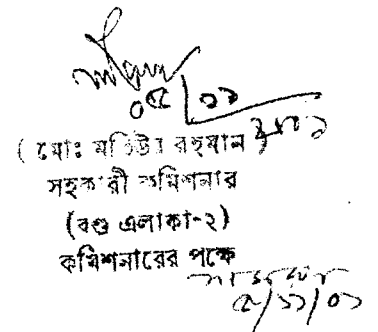 ০৫/১১
( মোঃ মতিউর রহমান )
সহকারী কমিশনার
(বণ্ড এলাকা-২)
কমিশনারের পক্ষে
৫/১১/০১